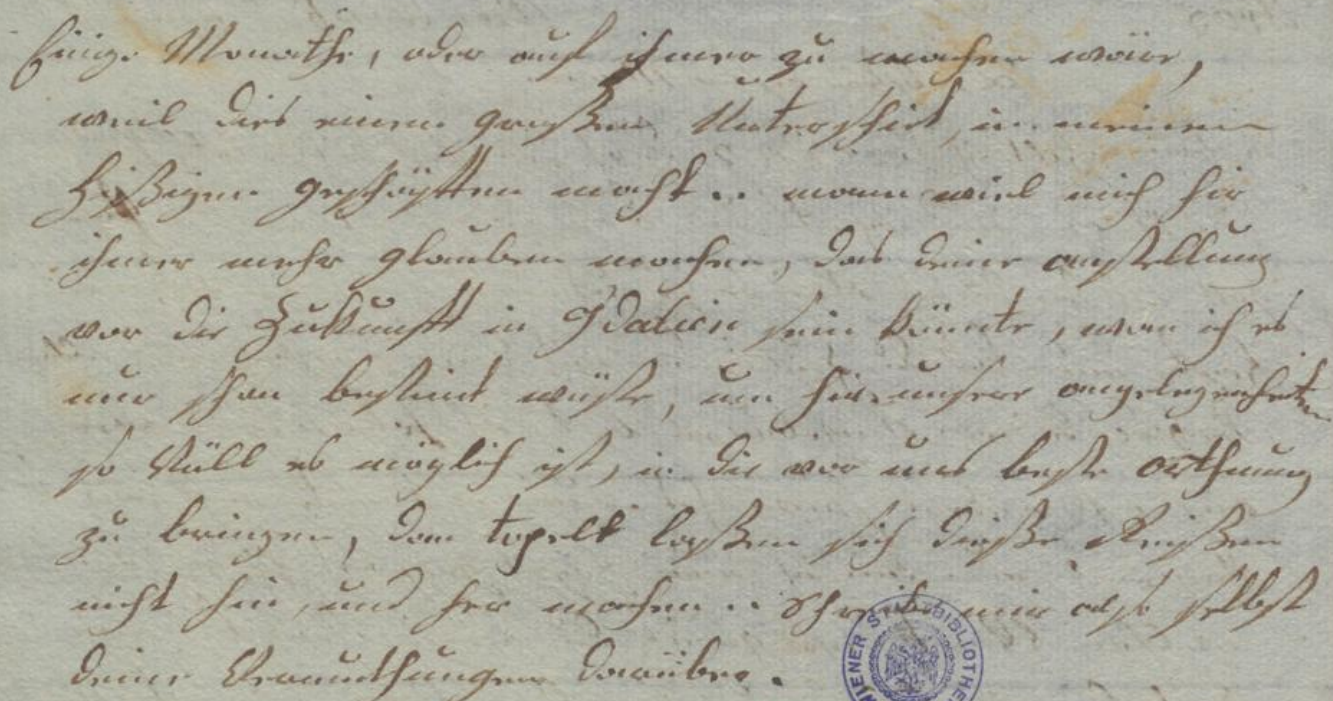 Einige Monathe, oder auf ihmer zu machen wäre,
weil dies einen großen Unterschid in meinen
hißigen geschäften macht .. mann wiel mich hir
ihmer mehr glauben machen, das deine anstellung
vor die Zukunft in Idalien sein könnte, wan ich es
nur schon bestimt wüste, um hir unsere angelegenheiten
so Vüll es möglich ist, in die vor uns beste orthnung
zu bringen, dan topelt laßen sich dieße Reißen
nicht hin, und her machen .. schreibe mir also selbst
deine Vermuthungen darüber.
WIENER STADTBIBLIOTHEK